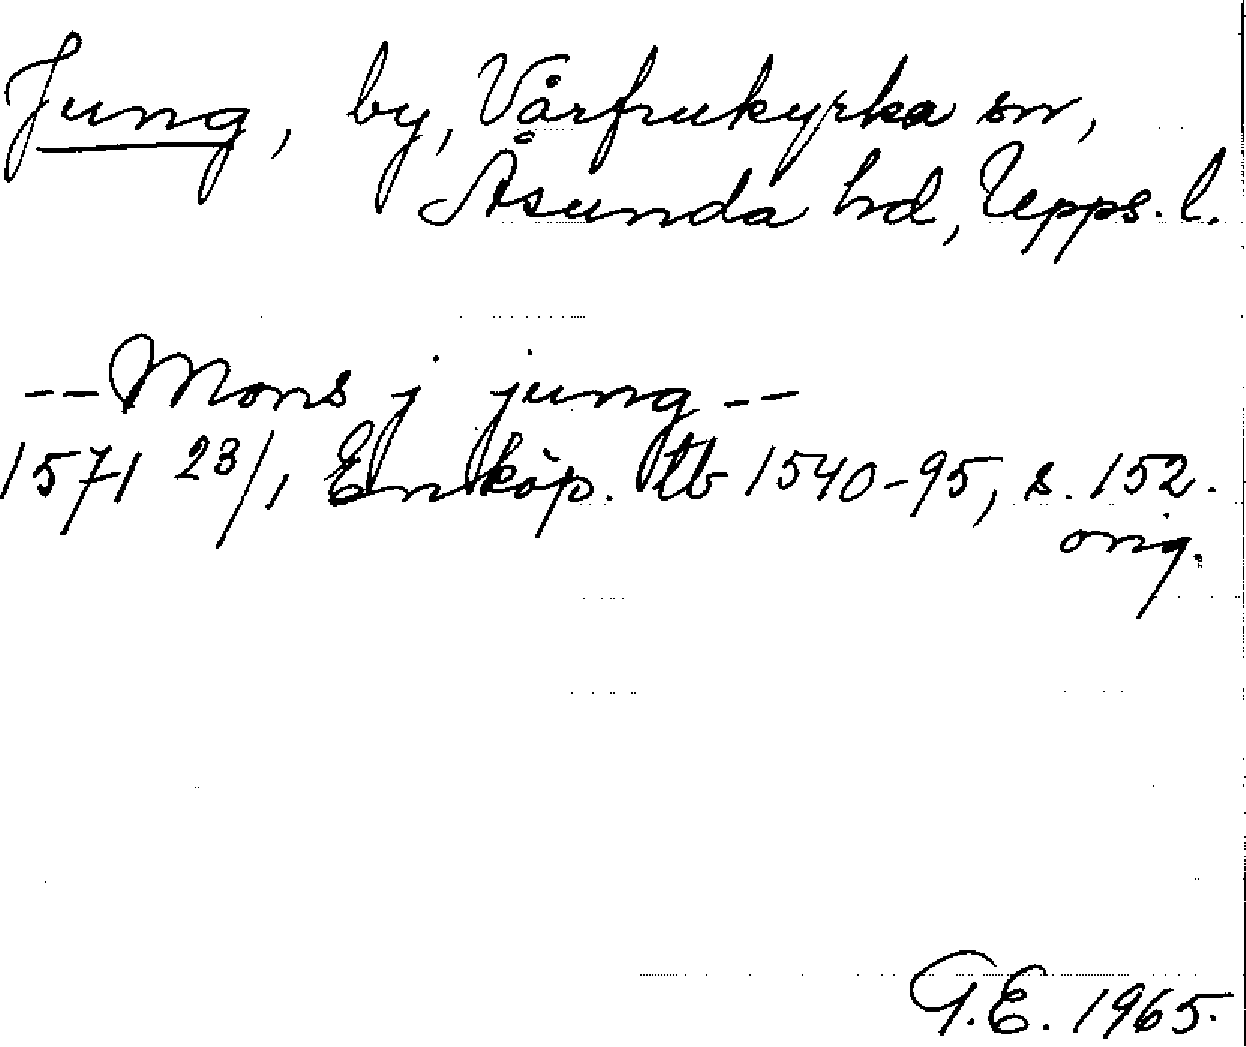 Jung, by, Vårfrukyrka sn,
Åsunda hd, Upps. l.
-- Mons j jung --
1571 23/1 Enköp. tb 1540-95, s. 152.
orig.
G.E. 1965.